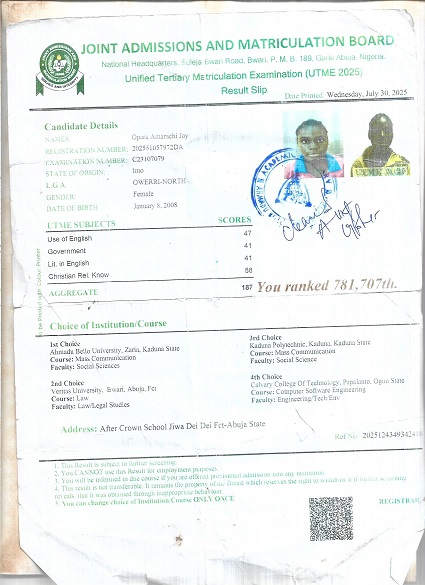 JOINT ADMISSIONS AND MATRICULATION BOARD
National Headquarters, Suleja Bwari Road, Bwari, P. M. B. 189, Garki Abuja, Nigeria.
Unified Tertiary Matriculation Examination (UTME 2025)
Result Slip
Date Printed: Wednesday, July 30, 2025
Candidate Details
NAMES: Opara Amarachi Joy
REGISTRATION NUMBER: 202531057972DA
EXAMINATION NUMBER: C23107079
STATE OF ORIGIN: Imo
L.G.A. OWERRI-NORTH
GENDER: Female
DATE OF BIRTH January 8, 2008
UTME SUBJECTS SCORES
Use of English 47
Government 41
Lit. in English 41
Christian Rel. Know 58
AGGREGATE 187 You ranked 781,707th.
to be Printed with Colour Printer
Choice of Institution/Course
1st Choice
Ahmadu Bello University, Zaria, Kaduna State
Course: Mass Communication
Faculty: Social Sciences
3rd Choice
Kaduna Polytechnic, Kaduna, Kaduna State
Course: Mass Communication
Faculty: Social Science
2nd Choice
Veritas University, Bwari, Abuja, Fct
Course: Law
Faculty: Law/Legal Studies
4th Choice
Calvary College Of Technology, Papalanto, Ogun State
Course: Computer Software Engineering
Faculty: Engineering/Tech/Env
Address: After Crown School Jiwa Dei Dei Fct-Abuja State
Ref No: 2025124349342418
1. This Result is subject to further screening.
2. You CANNOT use this Result for employment purposes.
3. You will be informed in due course if you are offered provisional admission into any institution.
4. This result is not transferable. It remains the property of the Board which reserves the right to withdraw it if further screening
reveals that it was obtained through inappropriate behaviour.
5. You can change choice of Institution/Course ONLY ONCE
REGISTRAR